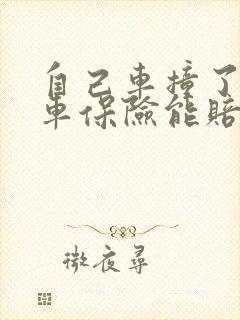 自己車撞了
車保險能賠
微夜尋